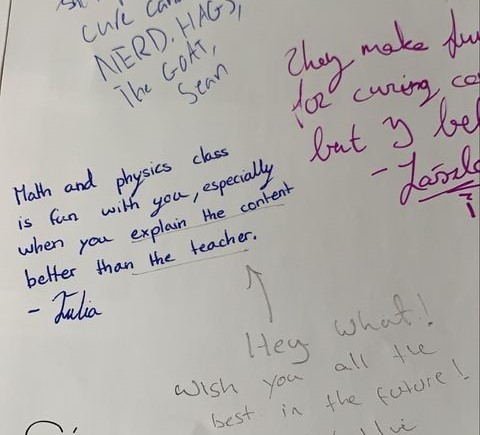 cure
NERD. HAGS,
The GOAT,
Sean
They make fun
for curing
but y
- László
Math and physics class
is fun with you, especially
when you explain the content
better than the teacher.
- Julia
Hey what!
wish you all the
best in the future!